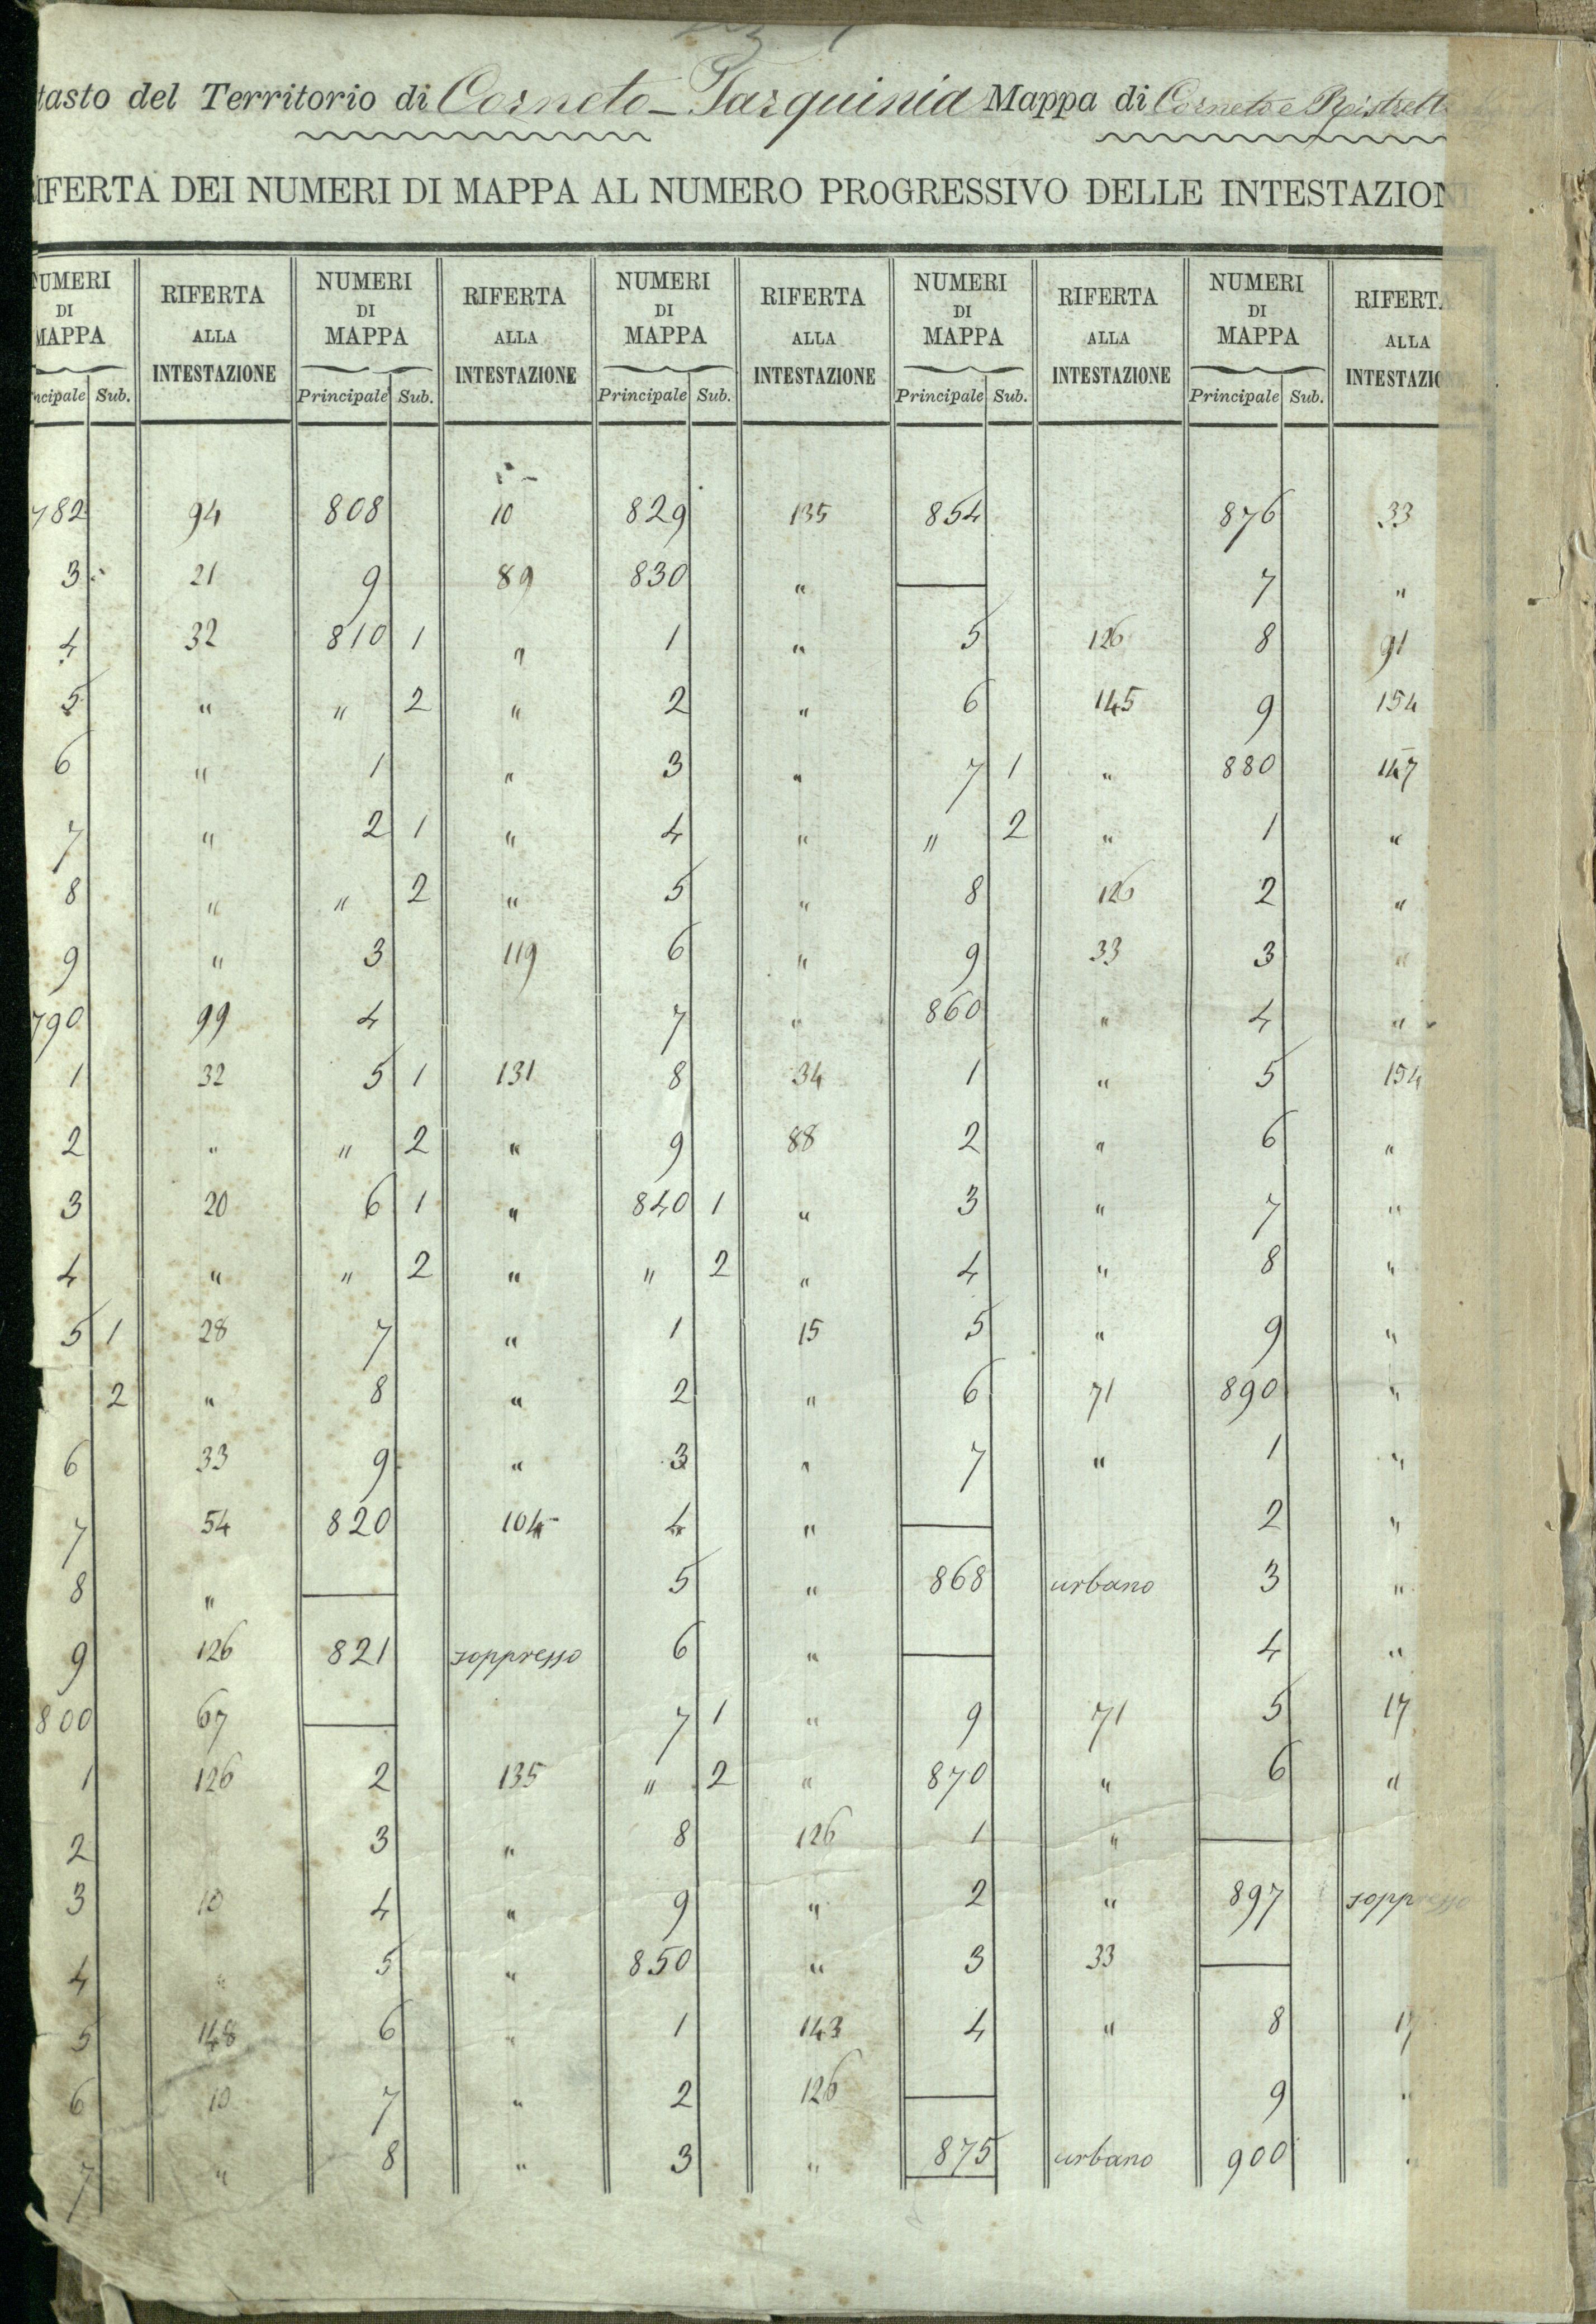 tasto del Territorio di Corneto-Tarquinia Mappa di Corneto e
IFERTA DEI NUMERI DI MAPPA AL NUMERO PROGRESSIVO DELLE INTESTAZIONI
NUMERI DI MAPPA RIFERTA ALLA INTESTAZIONE NUMERI DI MAPPA RIFERTA ALLA INTESTAZIONE NUMERI DI MAPPA RIFERTA ALLA INTESTAZIONE NUMERI DI MAPPA RIFERTA ALLA INTESTAZIONE NUMERI DI MAPPA RIFERTA ALLA INTESTAZIONE
ncipale Sub. Principale Sub. Principale Sub. Principale Sub. Principale Sub.
782 94 808 10 829 135 854 876 33
3 21 9 89 830 " 7 "
4 32 810 1 " 1 " 5 126 8 91
5 " " 2 " 2 " 6 145 9 154
6 " 1 " 3 " 7 1 " 880 147
7 " 2 1 " 4 " " 2 " 1 "
8 " " 2 " 5 " 8 126 2 "
9 " 3 119 6 " 9 33 3 "
790 99 4 7 " 860 " 4 "
1 32 5 1 131 8 34 1 " 5 154
2 " " 2 " 9 88 2 " 6 "
3 20 6 1 " 840 1 " 3 " 7 "
4 " " 2 " " 2 " 4 " 8 "
5 1 28 7 " 1 15 5 " 9 "
2 " 8 " 2 " 6 71 890 "
6 33 9 " 3 " 7 " 1 "
7 54 820 104 4 " 2 "
8 " 5 " 868 urbano 3 "
9 126 821 soppresso 6 " 4 "
800 67 7 1 " 9 71 5 17
1 126 2 135 " 2 " 870 " 6 "
2 3 " 8 126 1 "
3 10 4 " 9 " 2 " 897 soppresso
4 " 5 " 850 " 3 33
5 148 6 " 1 143 4 " 8 17
6 10 7 " 2 126 9 "
7 " 8 " 3 " 875 urbano 900 "